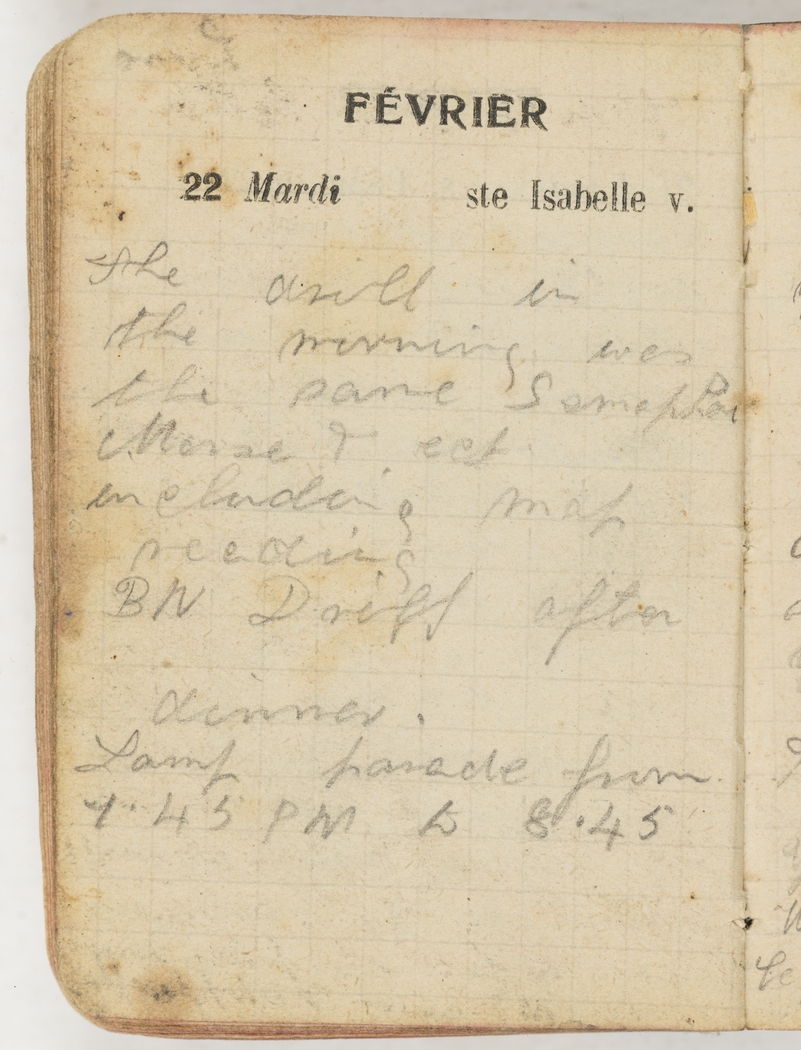 FÉVRIER
22 Mardi ste Isabelle v.
The drill in
the morning was
the same Semaphor
Morse & ect
including map
reading
BN Drill after
dinner.
Lamp parade from
7.45 PM to 8.45